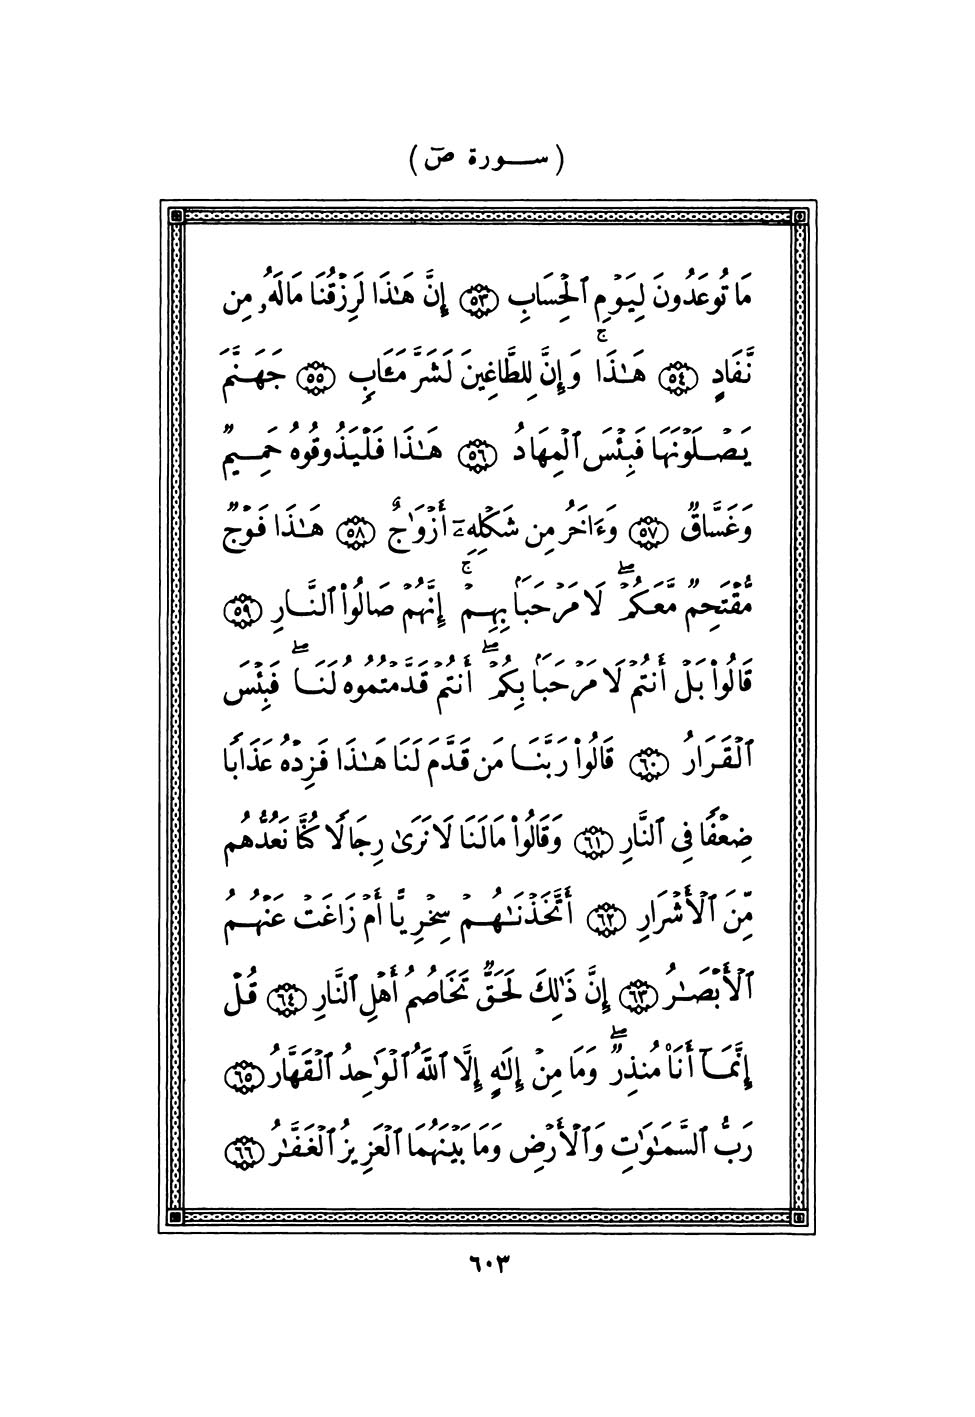 ( سورة صٓ )
مَا تُوعَدُونَ لِيَوْمِ ٱلْحِسَابِ ٥٣ إِنَّ هَٰذَا لَرِزْقُنَا مَالَهُۥ مِن
نَّفَادٍ ٥٤ هَٰذَاۚ وَإِنَّ لِلطَّاغِينَ لَشَرَّ مَـَٔابٍ ٥٥ جَهَنَّمَ
يَصْلَوْنَهَا فَبِئْسَ ٱلْمِهَادُ ٥٦ هَٰذَا فَلْيَذُوقُوهُ حَمِيمٌ
وَغَسَّاقٌ ٥٧ وَءَاخَرُ مِن شَكْلِهِۦٓ أَزْوَٰجٌ ٥٨ هَٰذَا فَوْجٌ
مُّقْتَحِمٌ مَّعَكُمْۖ لَا مَرْحَبًا بِهِمْۚ إِنَّهُمْ صَالُوا۟ ٱلنَّارِ ٥٩
قَالُوا۟ بَلْ أَنتُمْ لَا مَرْحَبًا بِكُمْۖ أَنتُمْ قَدَّمْتُمُوهُ لَنَاۖ فَبِئْسَ
ٱلْقَرَارُ ٦٠ قَالُوا۟ رَبَّنَا مَن قَدَّمَ لَنَا هَٰذَا فَزِدْهُ عَذَابًا
ضِعْفًا فِى ٱلنَّارِ ٦١ وَقَالُوا۟ مَالَنَا لَا نَرَىٰ رِجَالًا كُنَّا نَعُدُّهُم
مِّنَ ٱلْأَشْرَارِ ٦٢ أَتَّخَذْنَٰهُمْ سِخْرِيًّا أَمْ زَاغَتْ عَنْهُمُ
ٱلْأَبْصَٰرُ ٦٣ إِنَّ ذَٰلِكَ لَحَقٌّ تَخَاصُمُ أَهْلِ ٱلنَّارِ ٦٤ قُلْ
إِنَّمَآ أَنَا۠ مُنذِرٌۖ وَمَا مِنْ إِلَٰهٍ إِلَّا ٱللَّهُ ٱلْوَٰحِدُ ٱلْقَهَّارُ ٦٥
رَبُّ ٱلسَّمَٰوَٰتِ وَٱلْأَرْضِ وَمَا بَيْنَهُمَا ٱلْعَزِيزُ ٱلْغَفَّٰرُ ٦٦
٦٠٣